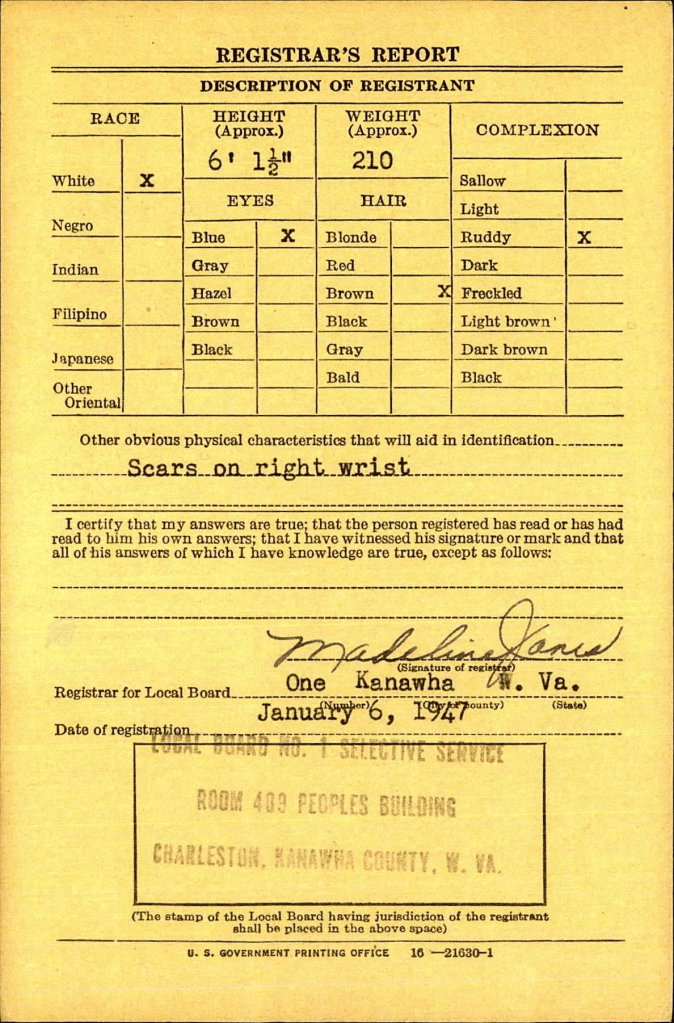 REGISTRAR'S REPORT
DESCRIPTION OF REGISTRANT
RACE
HEIGHT
(Approx.)
WEIGHT
(Approx.)
COMPLEXION
6' 1½"
210
White X
Sallow
EYES
HAIR
Light
Negro
Blue X
Blonde
Ruddy X
Gray
Red
Dark
Indian
Hazel
Brown X
Freckled
Filipino
Brown
Black
Light brown
Japanese
Black
Gray
Dark brown
Other
Oriental
Bald
Black
Other obvious physical characteristics that will aid in identification
Scars on right wrist
I certify that my answers are true; that the person registered has read or has had
read to him his own answers; that I have witnessed his signature or mark and that
all of his answers of which I have knowledge are true, except as follows:
Madeline Jones
(Signature of registrar)
Registrar for Local Board One Kanawha W. Va.
(Number) (City or county) (State)
Date of registration January 6, 1947
LOCAL BOARD NO. 1 SELECTIVE SERVICE
ROOM 409 PEOPLES BUILDING
CHARLESTON, KANAWHA COUNTY, W. VA.
(The stamp of the Local Board having jurisdiction of the registrant
shall be placed in the above space)
U. S. GOVERNMENT PRINTING OFFICE 16—21630-1